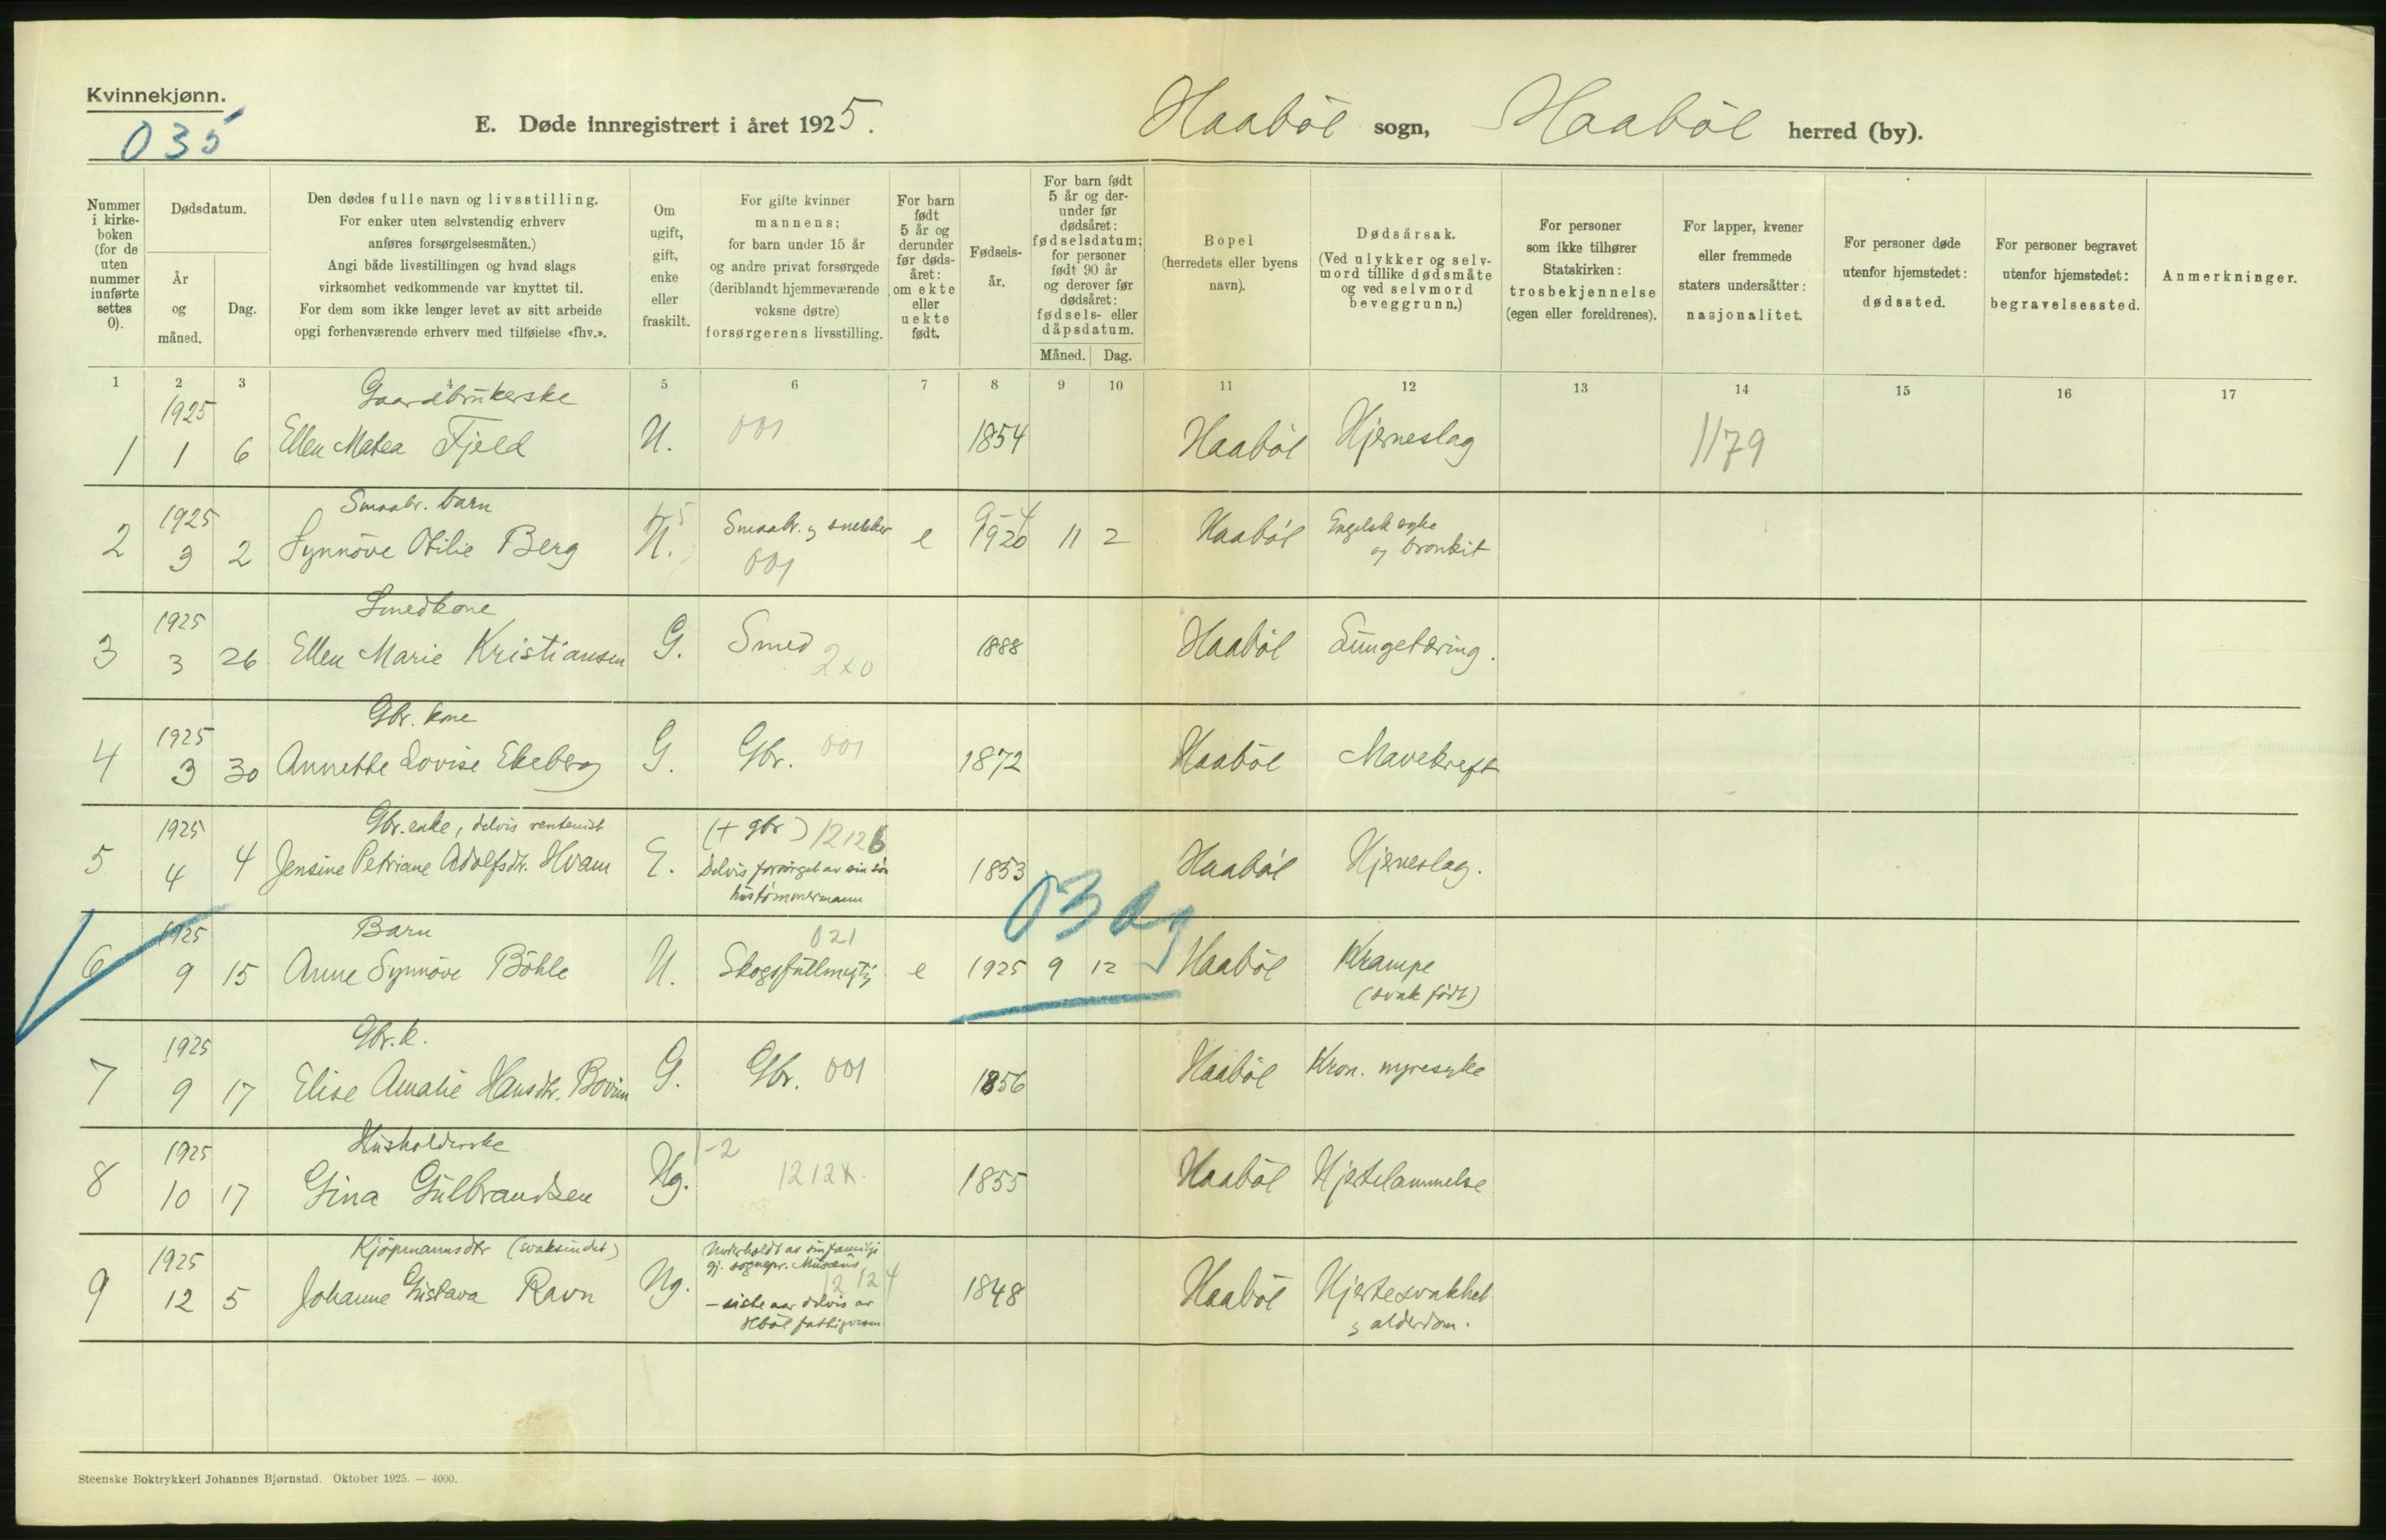 Kvinnekjønn.
035
E. Døde innregistrert i året 1925.
Haabøl sogn, Haabøl herred (by).
Nummer i kirke-boken (for de uten nummer innførte settes 0).
Dødsdatum.
År og måned.
Dag.
Den dødes fulle navn og livsstilling.
For enker uten selvstendig erhverv
anføres forsørgelsesmåten.)
Angi både livsstillingen og hvad slags
virksomhet vedkommende var knyttet til.
For dem som ikke lenger levet av sitt arbeide
opgi forhenværende erhverv med tilføielse «fhv.».
Om ugift, gift, enke eller fraskilt.
For gifte kvinner
mannens;
for barn under 15 år
og andre privat forsørgede
(deriblandt hjemmeværende
voksne døtre)
forsørgerens livsstilling.
For barn født 5 år og derunder før døds-året: om ekte eller uekte født.
Fødsels-år.
For barn født 5 år og der-under før dødsåret: fødselsdatum; for personer født 90 år og derover før dødsåret: fødsels- eller dåpsdatum.
Måned. Dag.
Bopel
(herredets eller byens
navn).
Dødsårsak.
(Ved ulykker og selv-
mord tillike dødsmåte
og ved selvmord
beveggrunn.)
For personer
som ikke tilhører
Statskirken:
trosbekjennelse
(egen eller foreldrenes).
For lapper, kvener
eller fremmede
staters undersåtter:
nasjonalitet.
For personer døde
utenfor hjemstedet:
dødssted.
For personer begravet
utenfor hjemstedet:
begravelsessted.
Anmerkninger.
1 2 3 4 5 6 7 8 9 10 11 12 13 14 15 16 17
1925 Gaardbrukerske
1 1 6 Ellen Matea Fjeld U. 001 1854 Haabøl Hjerneslag 1179
1925 Smaabr. barn
2 3 2 Synnøve Otilie Berg U. Smaabr. og snekker 001 e 1920 11 2 Haabøl Engelsk syke
og bronkit
1925 Smedkone
3 3 26 Ellen Marie Kristiansen G. Smed 2x0 1888 Haabøl Lungetæring.
1925 Gbr. kone
4 3 30 Annette Lovise Ekeberg G. Gbr. 001 1872 Haabøl Mavekreft
1925 Gbr. enke, delvis rentenist (+ gbr) 1212
5 4 4 Jensine Petriane Adolfsdtr. Hvam E. Delvis forsørget av sin søn
hustømmermann 1853 Haabøl Hjerneslag.
1925 Barn 021 03
6 9 15 Anne Synnøve Bøhle U. Skogsfullmegtig e 1925 9 12 Haabøl Krampe
(svak født)
1925 Gbr. k.
7 9 17 Elise Amalie Hansdtr. G. Gbr. 001 1856 Haabøl Kron. nyresyke
1925 Husholderske
8 10 17 Gina Gulbrandsen Ug. 1-2 1212x 1855 Haabøl Hjertelammelse
1925 Kjøpmannsdtr (svaksindet) Underholdt av sin familje
gj. sognepr. Musæus
9 12 5 Johanne Gustava Ravn Ug. 12124 1848 Haabøl Hjertesvakhet
og alderdom.
– siste aar delvis av
Hbøl fattigvesen
Steenske Boktrykkeri Johannes Bjørnstad. Oktober 1925. — 4000.